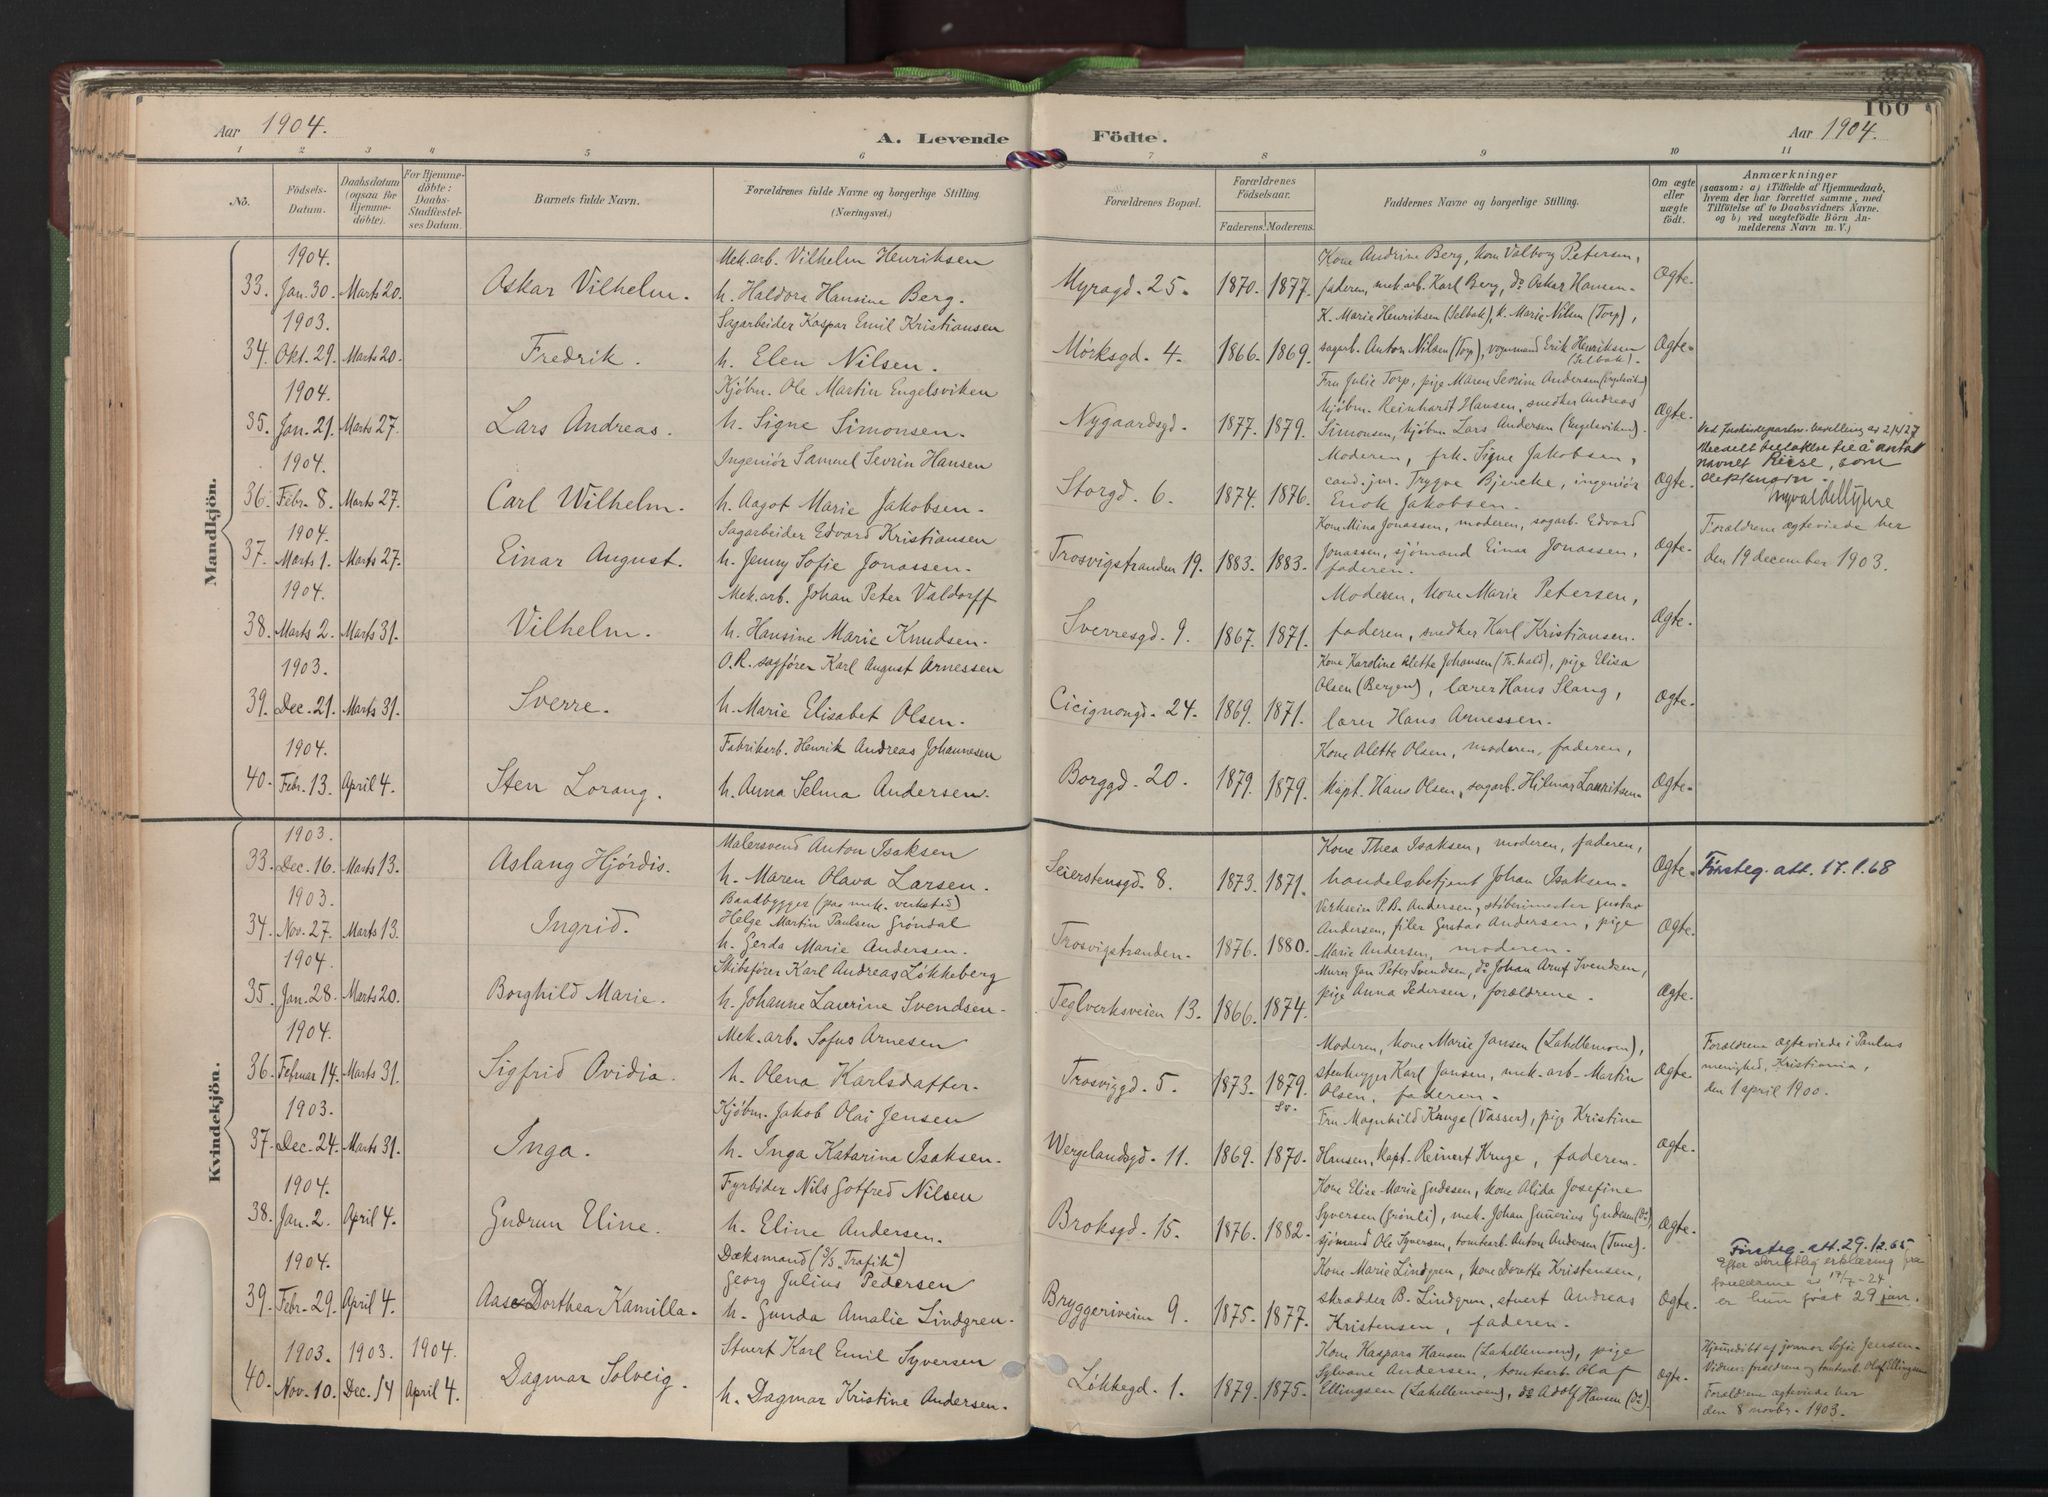 Aar 1904.
A. Levende Födte.
Aar 1904.
166
1 2 3 4 5 6 7 8 9 10 11
No.
Födsels-Datum.
Daabsdatum (ogsaa for Hjemmedöbte).
For Hjemmedöbte: Daabs-Stadfæstelses Datum.
Barnets fulde Navn.
Forældrenes fulde Navne og borgerlige Stilling (Næringsvei.)
Forældrenes Bopæl.
Forældrenes Födselsaar.
Faderens. Moderens.
Faddernes Navne og borgerlige Stilling.
Om ægte eller uægte födt.
Anmærkninger
(saasom: a) i Tilfælde af Hjemmedaab, hvem der har forrettet samme, med Tilföielse af to Daabsvidners Navne. og b) ved uegtefödte Börn Anmelderens Navn m. V.)
Mandkjön.
1904.
33. Jan. 30. Marts 20. Oskar Vilhelm.
Mek. arb. Vilhelm Henriksen
h. Haldora Hansine Berg.
Myragd. 25. 1870. 1877.
Kone Andrine Berg, kone Valborg Petersen,
faderen, mek. arb. Karl Berg, do Oskar Hansen.
Ægte.
1903.
34. Okt. 29. Marts 20. Fredrik.
Sagarbeider Kaspar Emil Kristiansen
h. Elen Nilsen.
Mørksgd. 4. 1866. 1869.
K. Marie Henriksen (Selbak), k. Marie Nilsen (Torp),
sagarb. Anton Nilsen (Torp), vognmand Erik Henriksen
(Selbak).
Ægte.
1904.
35. Jan. 21. Marts 27. Lars Andreas.
Kjøbm. Ole Martin Engelsviken
h. Signe Simonsen.
Nygaardsgd. 1877. 1879.
Fru Julie Torp, pige Maren Sevrine Andersen (Engelsviken)
kjøbm. Reinhardt Hansen, snedker Andreas
Simonsen, kjøbm. Lars Andersen (Engelsviken).
Ægte.
1904.
36. Febr. 8. Marts 27. Carl Wilhelm.
Ingeniör Samuel Sevrin Hansen
h. Aagot Marie Jakobsen.
Storgd. 6. 1874. 1876.
Moderen, frk. Signe Jakobsen,
cand. jur. Trygve Bjercke, ingeniör
Enok Jakobsen.
Ægte.
Ved Justisdepartm. bevilling av 2/4 27
meddelt tilladelse til å anta
navnet Riise, som
1904.
37. Marts 1. Marts 27. Einar August.
Sagarbeider Edvard Kristiansen
h. Jenny Sofie Jonassen.
Trosvigstranden 19. 1883. 1883.
Kone Mina Jonassen, moderen, sagarb. Edvard
Jonassen, sjömand Einar Jonassen,
faderen.
Ægte.
Forældrene ægteviede her
den 19 december 1903.
1904.
38. Marts 2. Marts 31. Vilhelm.
Mek. arb. Johan Peter Valdorff
h. Hansine Marie Knudsen.
Sverresgd. 9. 1867. 1871.
Moderen, kone Marie Petersen,
faderen, snedker Karl Kristiansen.
Ægte.
1903.
39. Dec. 21. Marts 31. Sverre.
O.R. sagfører Karl August Arnessen
h. Marie Elisabet Olsen.
Cicignongd. 24. 1869. 1871.
Kone Karoline Alette Johansen (Fr.hald), pige Elisa
Olsen (Bergen), lærer Hans Slang,
lærer Hans Arnessen.
Ægte.
1904.
40. Febr. 13. April 4. Sten Lorang.
Fabrikarb. Henrik Andreas Johannesen
h. Anna Selma Andersen.
Borggd. 20. 1879. 1879.
Kone Alette Olsen, moderen, faderen,
kapt. Hans Olsen, sagarb. Hilmar Lauritsen.
Ægte.
Kvindekjön.
1903.
33. Dec. 16. Marts 13. Aslaug Hjördis.
Malersvend Anton Isaksen
h. Maren Olava Larsen.
Seierstensgd. 8. 1873. 1871.
Kone Thea Isaksen, moderen, faderen,
handelsbetjent Johan Isaksen.
Ægte.
Førsteg. att. 17.1.68
1903.
34. Nov. 27. Marts 13. Ingrid.
Baadbygger (paa mek. verksted)
Helge Martin Paulsen Gröndal
h. Gerda Marie Andersen.
Trosvigstranden. 1876. 1880.
Verkseier P.B. Andersen, støberimester Gustav
Andersen, filer Gustav Andersen, pige
Marie Andersen, moderen.
Ægte.
1904.
35. Jan. 28. Marts 20. Borghild Marie.
Skibsfører Karl Andreas Løkkeberg
h. Johanne Laurine Svendsen.
Teglverksveien 13. 1866. 1874.
Murer Jan Peter Svendsen, do Johan Arnt Svendsen,
pige Anna Pedersen, forældrene.
Ægte.
1904.
36. Februar 14. Marts 31. Sigfrid Ovidia.
Mek. arb. Sofus Arnesen
h. Olena Karlsdatter.
Trosviggd. 5. 1873. 1879. Sv.
Moderen, kone Marie Jansen (Lahellemoen),
stenhugger Karl Jansen, mek. arb. Martin
Olsen, faderen.
Ægte.
Forældrene ægteviede i Paulus
menighed, Kristiania,
den 1 april 1900.
1903.
37. Dec. 24. Marts 31. Inga.
Kjøbm. Jakob Olai Jensen
h. Inga Katarina Isaksen.
Wergelandsgd. 11. 1869. 1870.
Fru Magnhild Kruge (Vasser), pige Kristine
Hansen, kapt. Reinert Kruge, faderen.
Ægte.
1904.
38. Jan. 2. April 4. Gudrun Eline.
Fyrbøder Nils Gotfred Nilsen
h. Eline Andersen.
Broksgd. 15. 1876. 1882.
Kone Elise Marie Gudesen, kone Alida Josefine
Syversen (Grönli), mek. Johan Gunerius Gudesen (Do),
sjömand Ole Syversen, tomtearb. Anton Andersen (Tune).
Ægte.
1904.
39. Febr. 29. April 4. Aase Dorthea Kamilla.
Dæksmand (S/S "Trafik")
Georg Julius Pedersen
h. Gunda Amalie Lindgren.
Bryggeriveien 9. 1875. 1877.
Kone Marie Lindgren, kone Dorette Kristensen,
skrædder B. Lindgren, stuert Andreas
Kristensen, faderen.
Ægte.
Førsteg. att. 29.12.65
Efter skriftlig erklæring fra
forældrene av 17/7-24
er hun født 29 jan.
1903. 1903. 1904.
40. Nov. 10. Dec. 14 April 4. Dagmar Solveig.
Stuert Karl Emil Syversen
h. Dagmar Kristine Andersen.
Løkkegd. 1. 1879. 1875.
Kone Kaspara Hansen (Lahellemoen), pige
Sylvane Andersen, tomtearb. Olaf
Ellingsen (Lahellemoen), do Adolf Hansen (Do).
Ægte.
Hjemmedöbt af jormor Sofie Jensen.
Vidner: forældrene og tomtearb. Olaf Ellingsen
Forældrene ægteviede her
den 8 novbr. 1903.